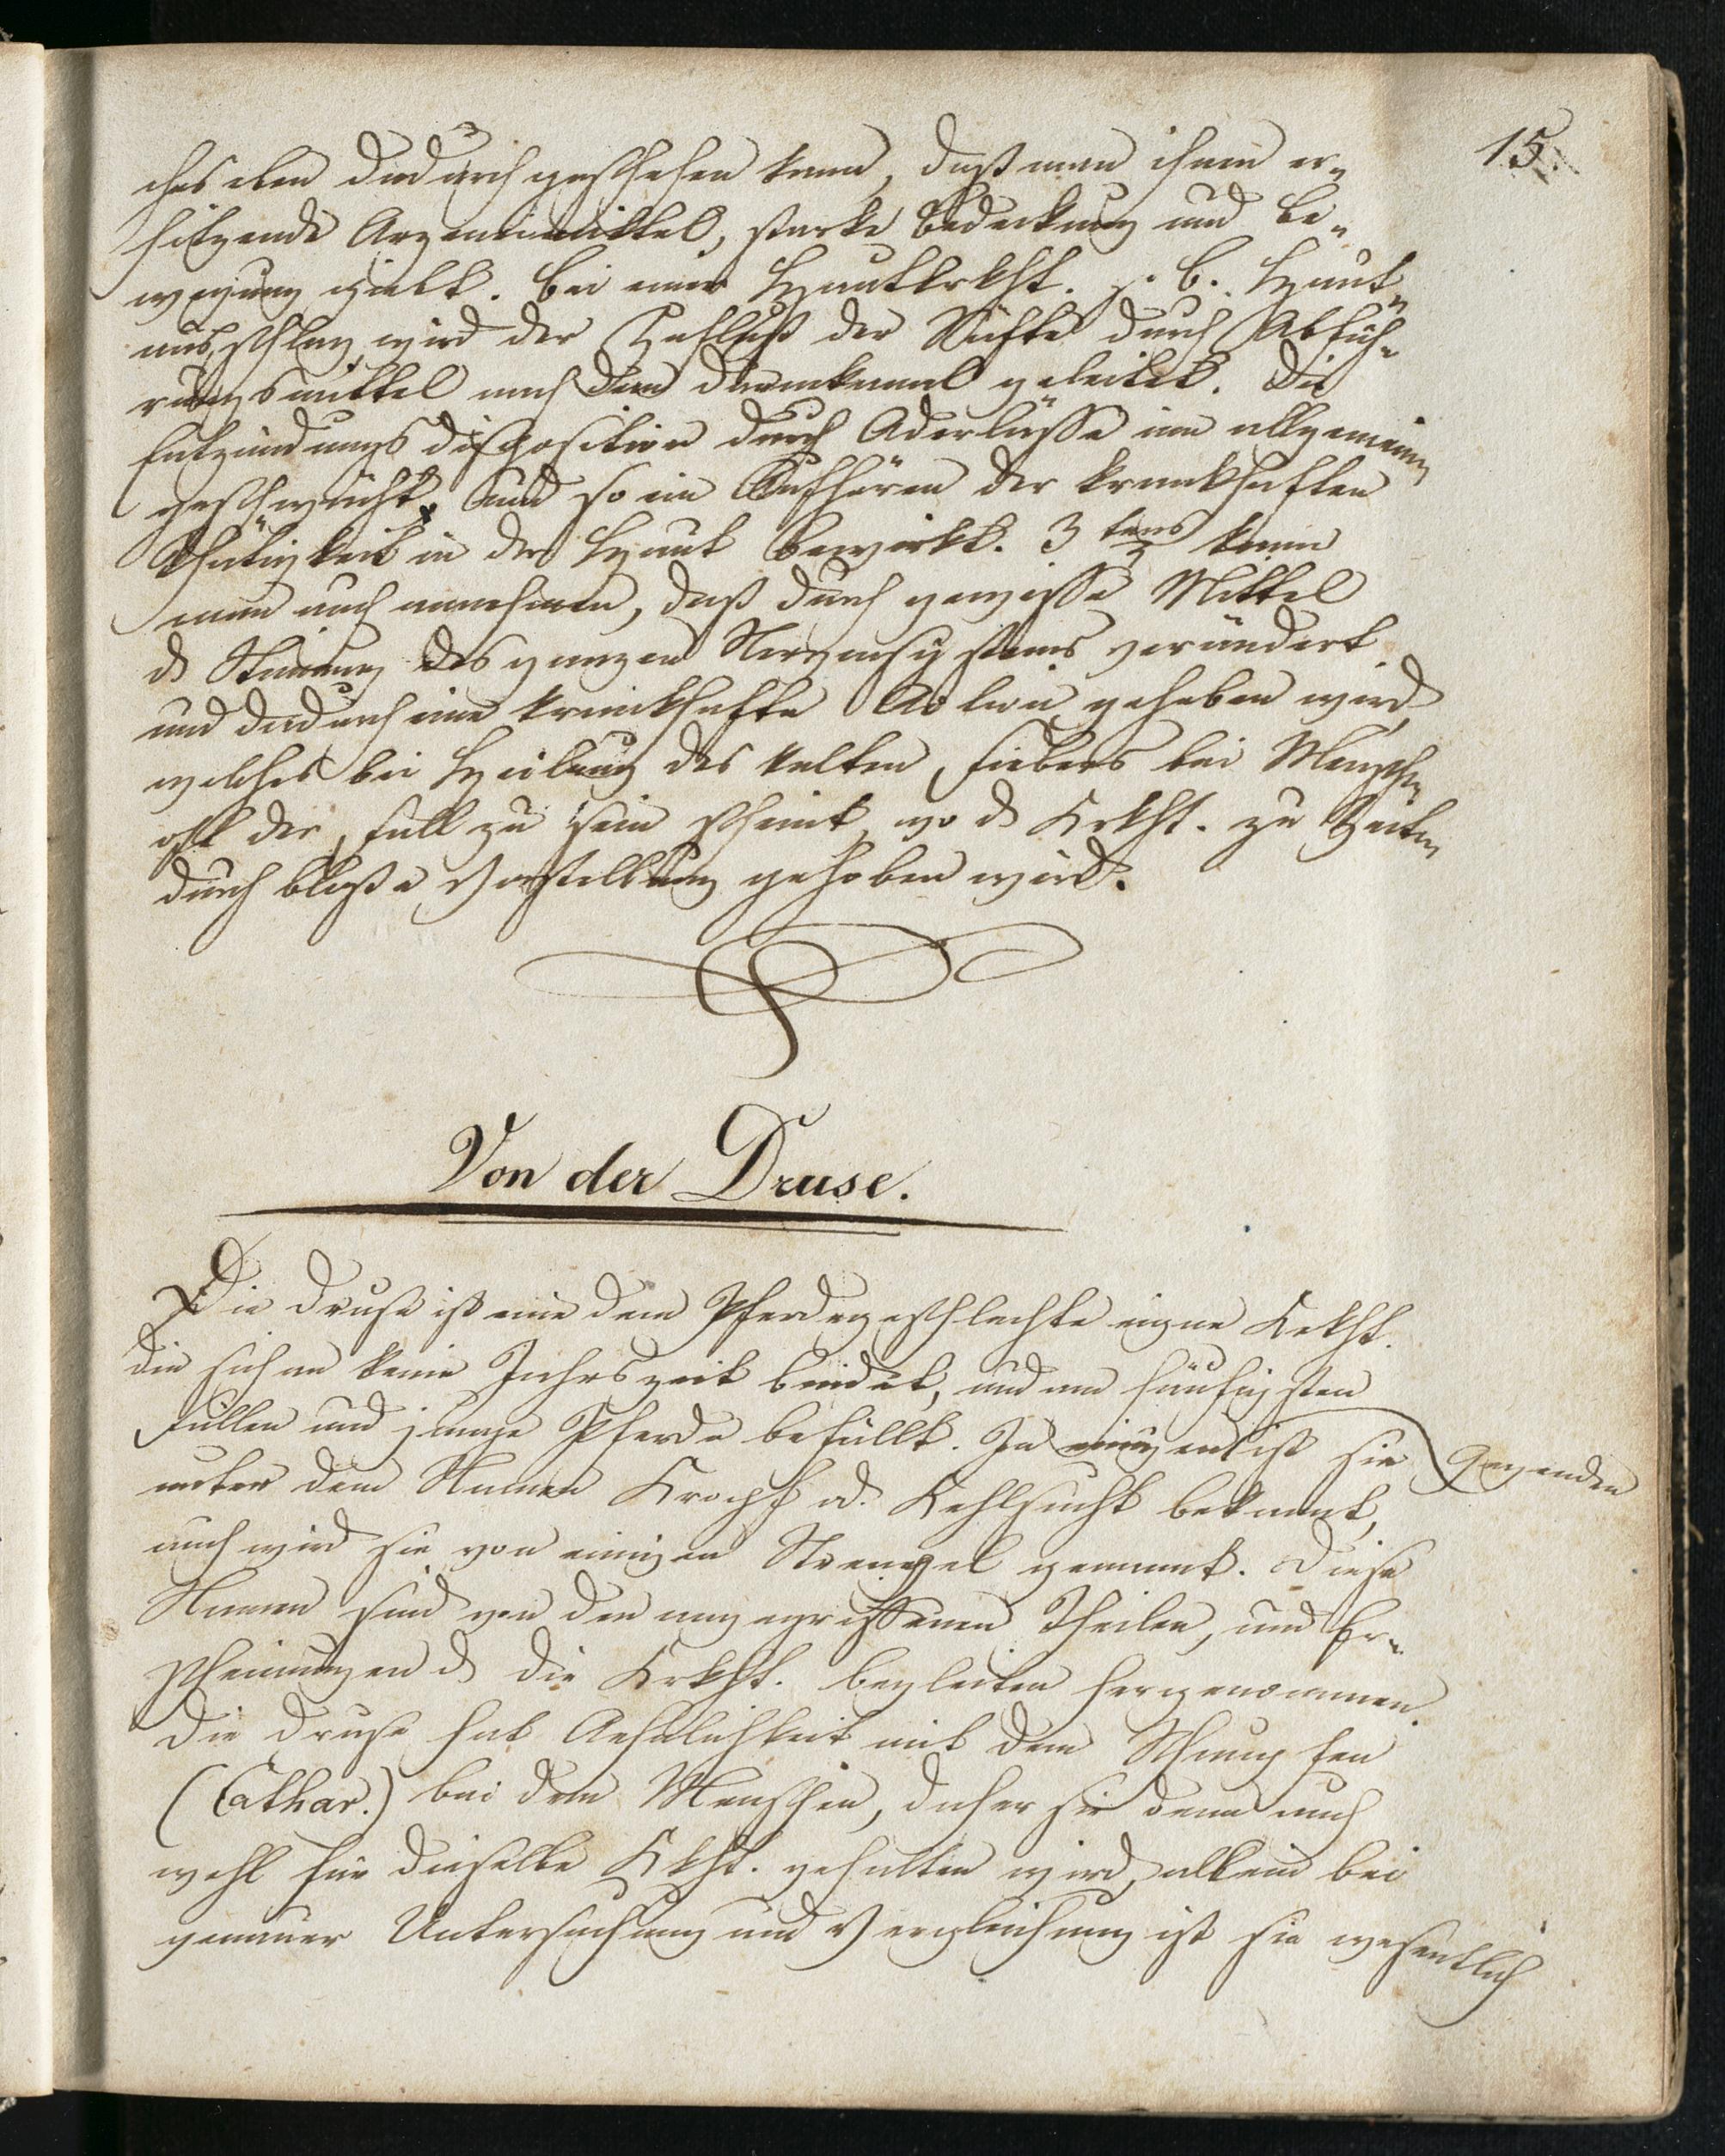 15.
ches eben dadurch geschehen kann, daß man ihnen er-
hitzende Arzeneimittel, starke Bedeckung und Be-
wegung giebt. Bei einer Hautkrkht. z. B. Haut-
ausschlag wird der Zufluß der Säfte durch Abfüh-
rungsmittel nach dem Darmkanal geleitet. Die
Entzündungsdisposition durch Aderlässe im allgemeinen
geschwächt, und so ein Aufhören der krankhaften
Thätigkeit in der Haut bewirkt. 3tens kann
man auch annehmen, daß durch gewisse Mittel
d Stimung des ganzen Nervensystems verändert
und dadurch eine krankhafte Action gehoben wird,
welches bei Heilung des kalten Fiebers bei Menschen
oft der Fall zu sein scheint, wo d Krkht. zu Zeiten
durch bloße Vorstellung gehoben wird.
Von der Druse.
Die Druse ist eine dem Pferdegeschlechte eigne Krkht.
die sich an keine Jahrszeit bindet, und am häufigsten
Füllen und junge Pferde befällt. In einigen ist sie Gegenden
unter dem Namen Kropf od. Kehlsucht bekannt,
auch wird sie von einigen Strengel genannt. Diese
Namen sind von den angegriffenen Theilen, und Er-
scheinungen d die Krkht. begleiten hergenommen.
Die Druse hat Aehnlichkeit mit dem Schnupfen
(Cathar.) bei dem Menschen, daher sie denn auch
wohl für dieselbe Krkht. gehalten wird, allein bei
genauer Untersuchung und Vergleichung ist sie wesentlich